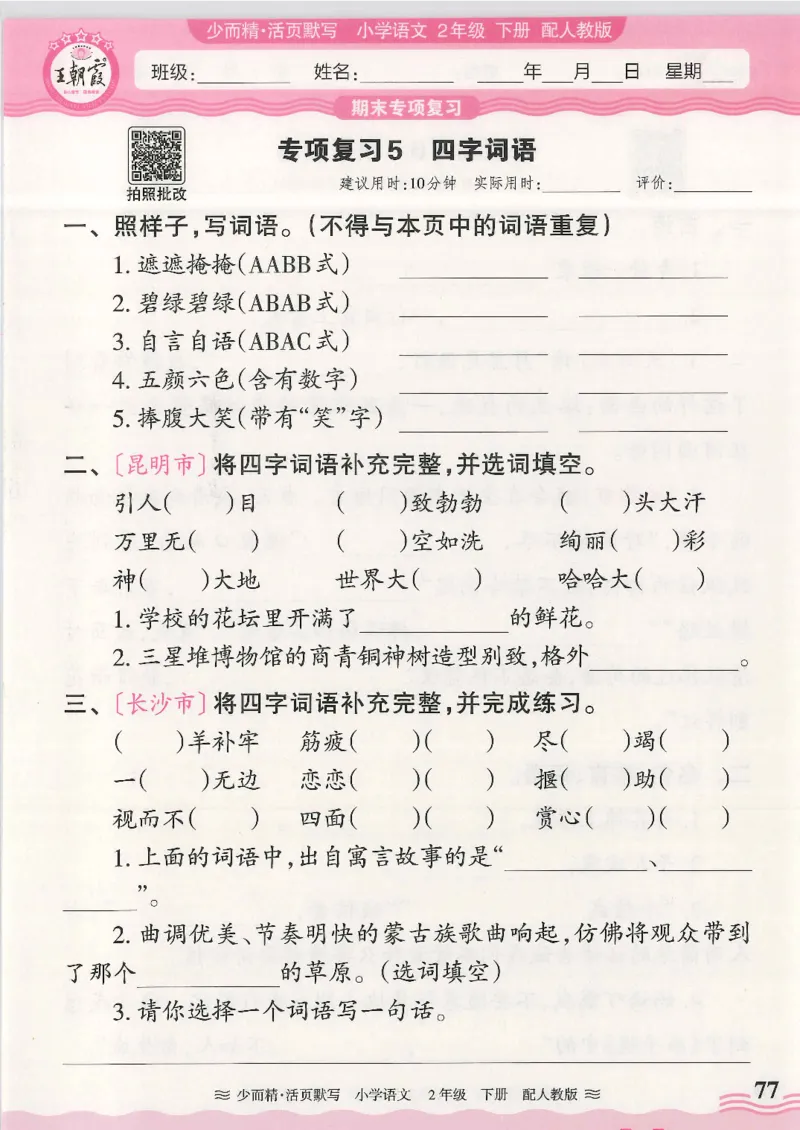 少而精·活页默写 小学语文 2年级 下册 配人教版
王朝霞
班级:________ 姓名:________ ____年___月___日 星期___
期末专项复习
拍照批改
专项复习5 四字词语
建议用时:10分钟 实际用时:________ 评价:________
一、照样子,写词语。(不得与本页中的词语重复)
1.遮遮掩掩(AABB式) ________ ________
2.碧绿碧绿(ABAB式) ________ ________
3.自言自语(ABAC式) ________ ________
4.五颜六色(含有数字) ________ ________
5.捧腹大笑(带有“笑”字) ________ ________
二、[昆明市]将四字词语补充完整,并选词填空。
引人( )目 ( )致勃勃 ( )头大汗
万里无( ) ( )空如洗 绚丽( )彩
神( )大地 世界大( ) 哈哈大( )
1.学校的花坛里开满了________的鲜花。
2.三星堆博物馆的商青铜神树造型别致,格外________。
三、[长沙市]将四字词语补充完整,并完成练习。
( )羊补牢 筋疲( )( ) 尽( )竭( )
一( )无边 恋恋( )( ) 揠( )助( )
视而不( ) 四面( )( ) 赏心( )( )
1.上面的词语中,出自寓言故事的是“________、________
________”。
2.曲调优美、节奏明快的蒙古族歌曲响起,仿佛将观众带到
了那个________的草原。(选词填空)
3.请你选择一个词语写一句话。
少而精·活页默写 小学语文 2年级 下册 配人教版
77